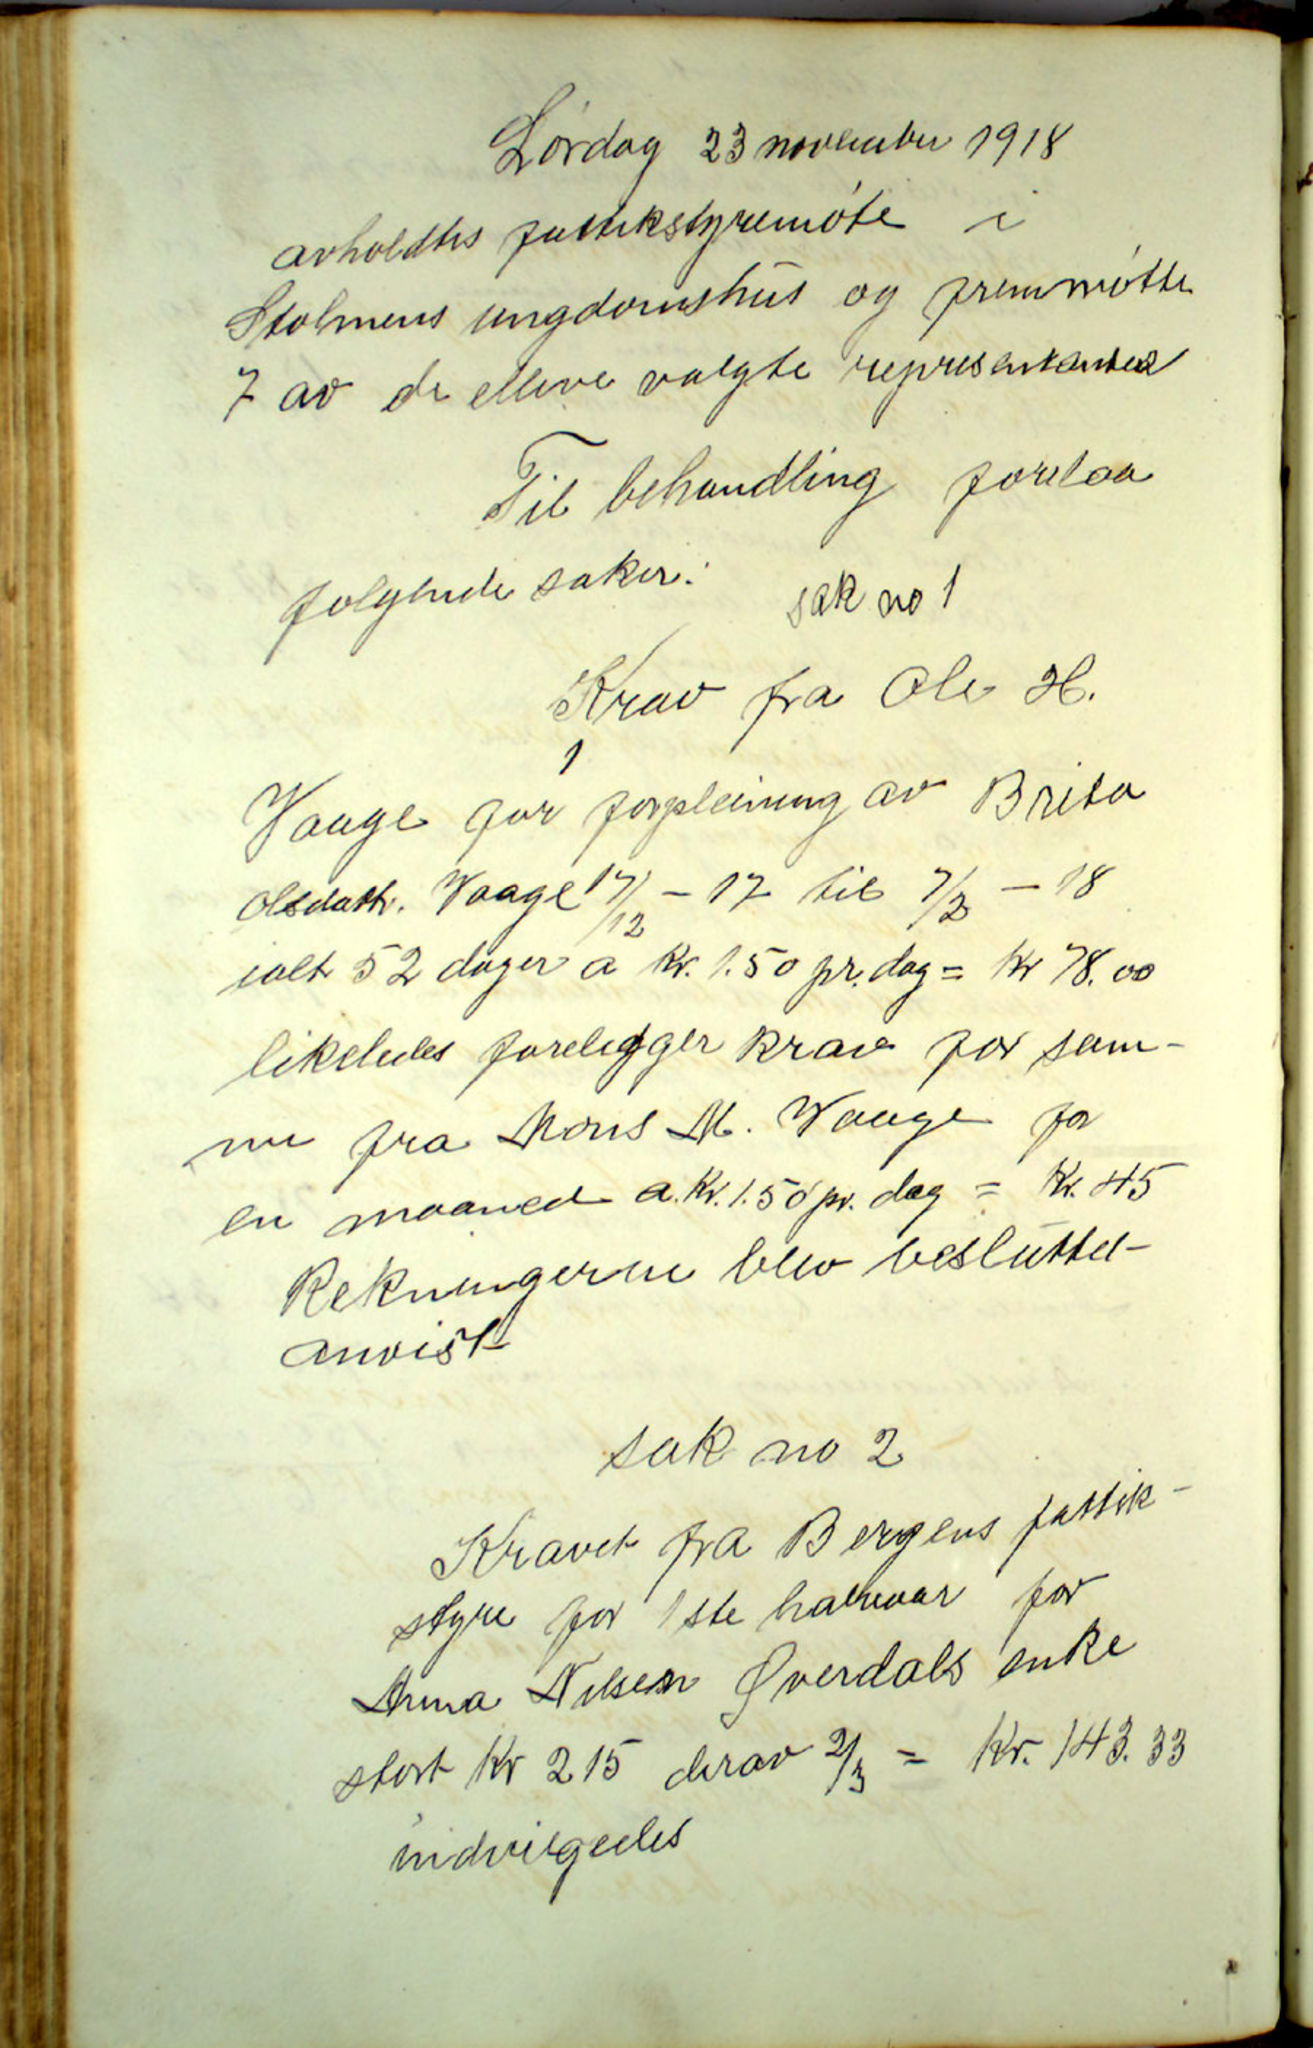 Lørdag 23 november 1918
avholdtes fattikstyremøte i
Stolmens ungdomshus og fremmøtte
7 av de elleve valgte representanter
Til behandling forelaa
følgende saker:
sak no 1
Krav fra Ole H.
1
Vaage for forpleining av Brita
Olsdattr. Vaage 17/12 – 17 til 7/2 – 18
ialt 52 dager a kr. 1.50 pr. dag = kr 78.00
likeledes foreligger krav for sam-
me fra Mons M. Vaage for
en maaned a. kr. 1.50 pr. dag = kr. 45
Rekningerne blev besluttet
anvist
sak no 2
Kravet fra Bergens fattik-
styre for 1ste halvaar for
Anna Nilsen Øverdals enke
stort kr 215 herav 2/3 = kr. 143.33
indvilgedes